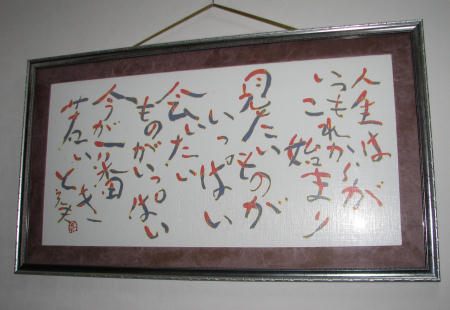 人生は
いつもれからが
こ始まり
見たいものが
いっぱい
会いたい
ものがいっぱい
今が一番
若いとき